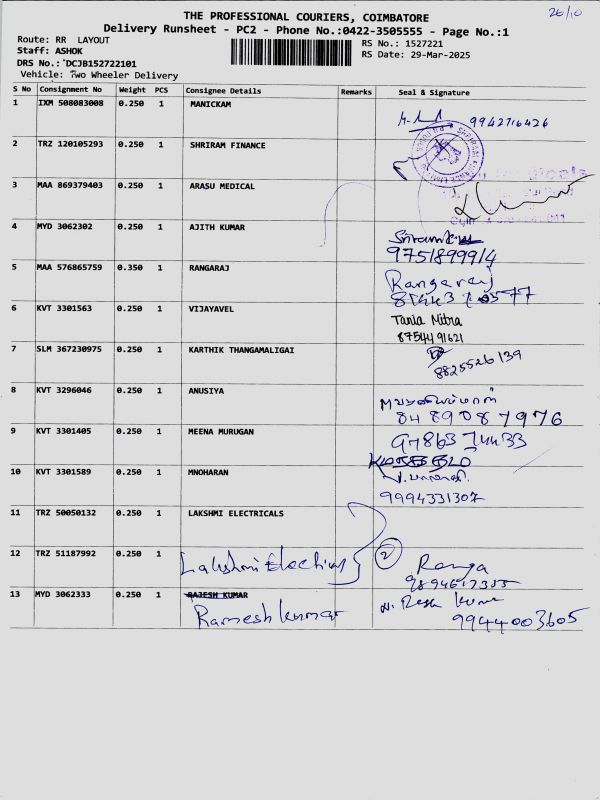 26/10
THE PROFESSIONAL COURIERS, COIMBATORE
Delivery Runsheet - PC2 - Phone No.:0422-3505555 - Page No.:1
Route: RR LAYOUT
Staff: ASHOK
DRS No.: DCJB152722101
Vehicle: Two Wheeler Delivery
RS No.: 1527221
RS Date: 29-Mar-2025
S No Consignment No Weight PCS Consignee Details Remarks Seal & Signature
1 IXM 508083008 0.250 1 MANICKAM
9942716426
2 TRZ 120105293 0.250 1 SHRIRAM FINANCE
3 MAA 869379403 0.250 1 ARASU MEDICAL
4 MYD 3062302 0.250 1 AJITH KUMAR
9751899914
5 MAA 576865759 0.350 1 RANGARAJ
Rangaraj
6 KVT 3301563 0.250 1 VIJAYAVEL
Tania Mitra
8754491621
7 SLM 367230975 0.250 1 KARTHIK THANGAMALIGAI
8825526139
8 KVT 3296046 0.250 1 ANUSIYA
8489087976
9 KVT 3301405 0.250 1 MEENA MURUGAN
9786374433
10 KVT 3301589 0.250 1 MNOHARAN
9994331307
11 TRZ 50050132 0.250 1 LAKSHMI ELECTRICALS
12 TRZ 51187992 0.250 1
Lakshmi Electricals 2 Ranga
13 MYD 3062333 0.250 1 RAJESH KUMAR
Ramesh kumar
9944003605